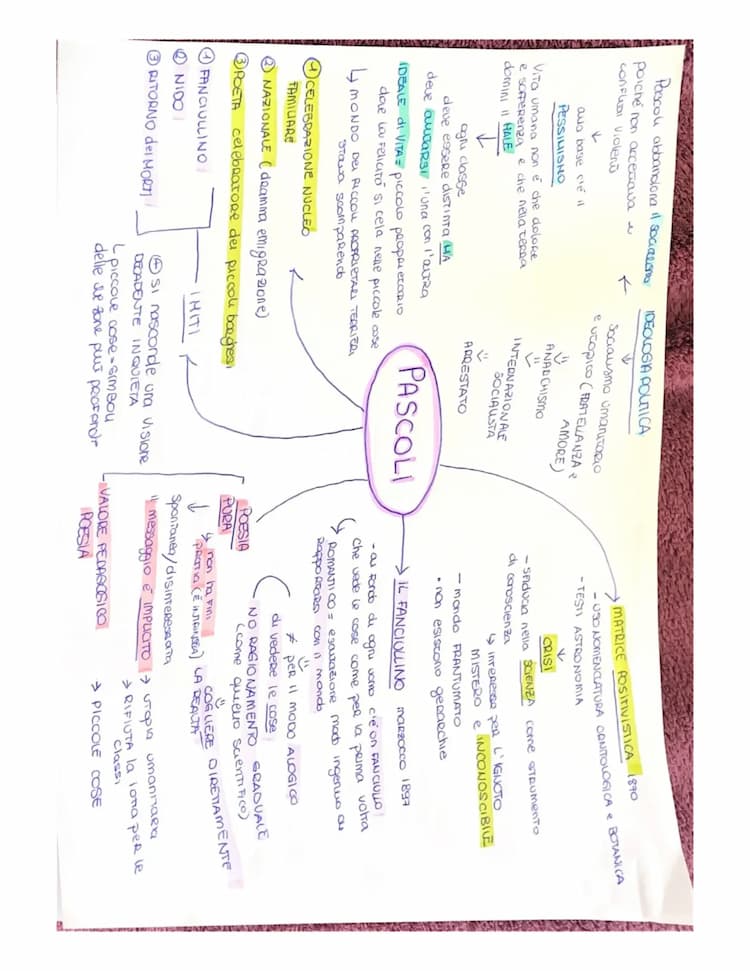 PASCOLI
IDEOLOGIA POLITICA
Socialismo umanitario
e utopico (FRATELLANZA e
AMORE)
ANARCHISMO
INTERNAZIONALE
SOCIALISTA
ARRESTATO
Pascoli abbandona il socialismo
poiché non accettava i
conflitti violenti
alla base c'è il
PESSIMISMO
Vita umana non è che dolore
e sofferenza e che nella terra
domini il MALE
ogni classe
deve essere distinta MA
deve aiutarsi l'una con l'altra
IDEALE di VITA = piccolo proprietario
dove la felicità si cela nelle piccole cose
↳ MONDO DEI PICCOLI PROPRIETARI TERRIERI
STAVA SCOMPARENDO
① CELEBRAZIONE NUCLEO
FAMILIARE
② NAZIONALE (dramma emigrazione)
③ POETA celebratore dei piccoli borghesi
I MITI
① FANCIULLINO
② NIDO
③ RITORNO dei MORTI
④ SI nasconde una VISIONE
DECADENTE INQUIETA
↳ piccole cose = SIMBOLI
delle sue zone più profonde
MATRICE POSITIVISTICA 1890
- USO NOMENCLATURA ORNITOLOGICA e BOTANICA
- TESTI ASTRONOMIA
CRISI
- sfiducia nella SCIENZA come STRUMENTO
di conoscienza
↳ interesse per l'IGNOTO
MISTERO e INCONOSCIBILE
- mondo FRANTUMATO
• non esistono gerarchie
IL FANCIULLINO MARZOCCO 1897
- al fondo di ogni uomo c'è un FANCIULLO
che vede le cose come per la prima volta
↳ ROMANTICO = esaltazione modo ingenuo di
rapportarsi con il mondo
≠ per il modo ALOGICO
di vedere le cose
NO RAGIONAMENTO GRADUALE
(come quello scientifico)
COGLIERE DIRETTAMENTE
LA REALTÀ
POESIA
PURA
↳ non ha fini
pratici (È INTRINSECA)
Spontanea/disinteressata
il messaggio è IMPLICITO → UTOPIA UMANITARIA
→ RIFIUTA la lotta per le
classi
VALORE PEDAGOGICO
POESIA
→ PICCOLE COSE